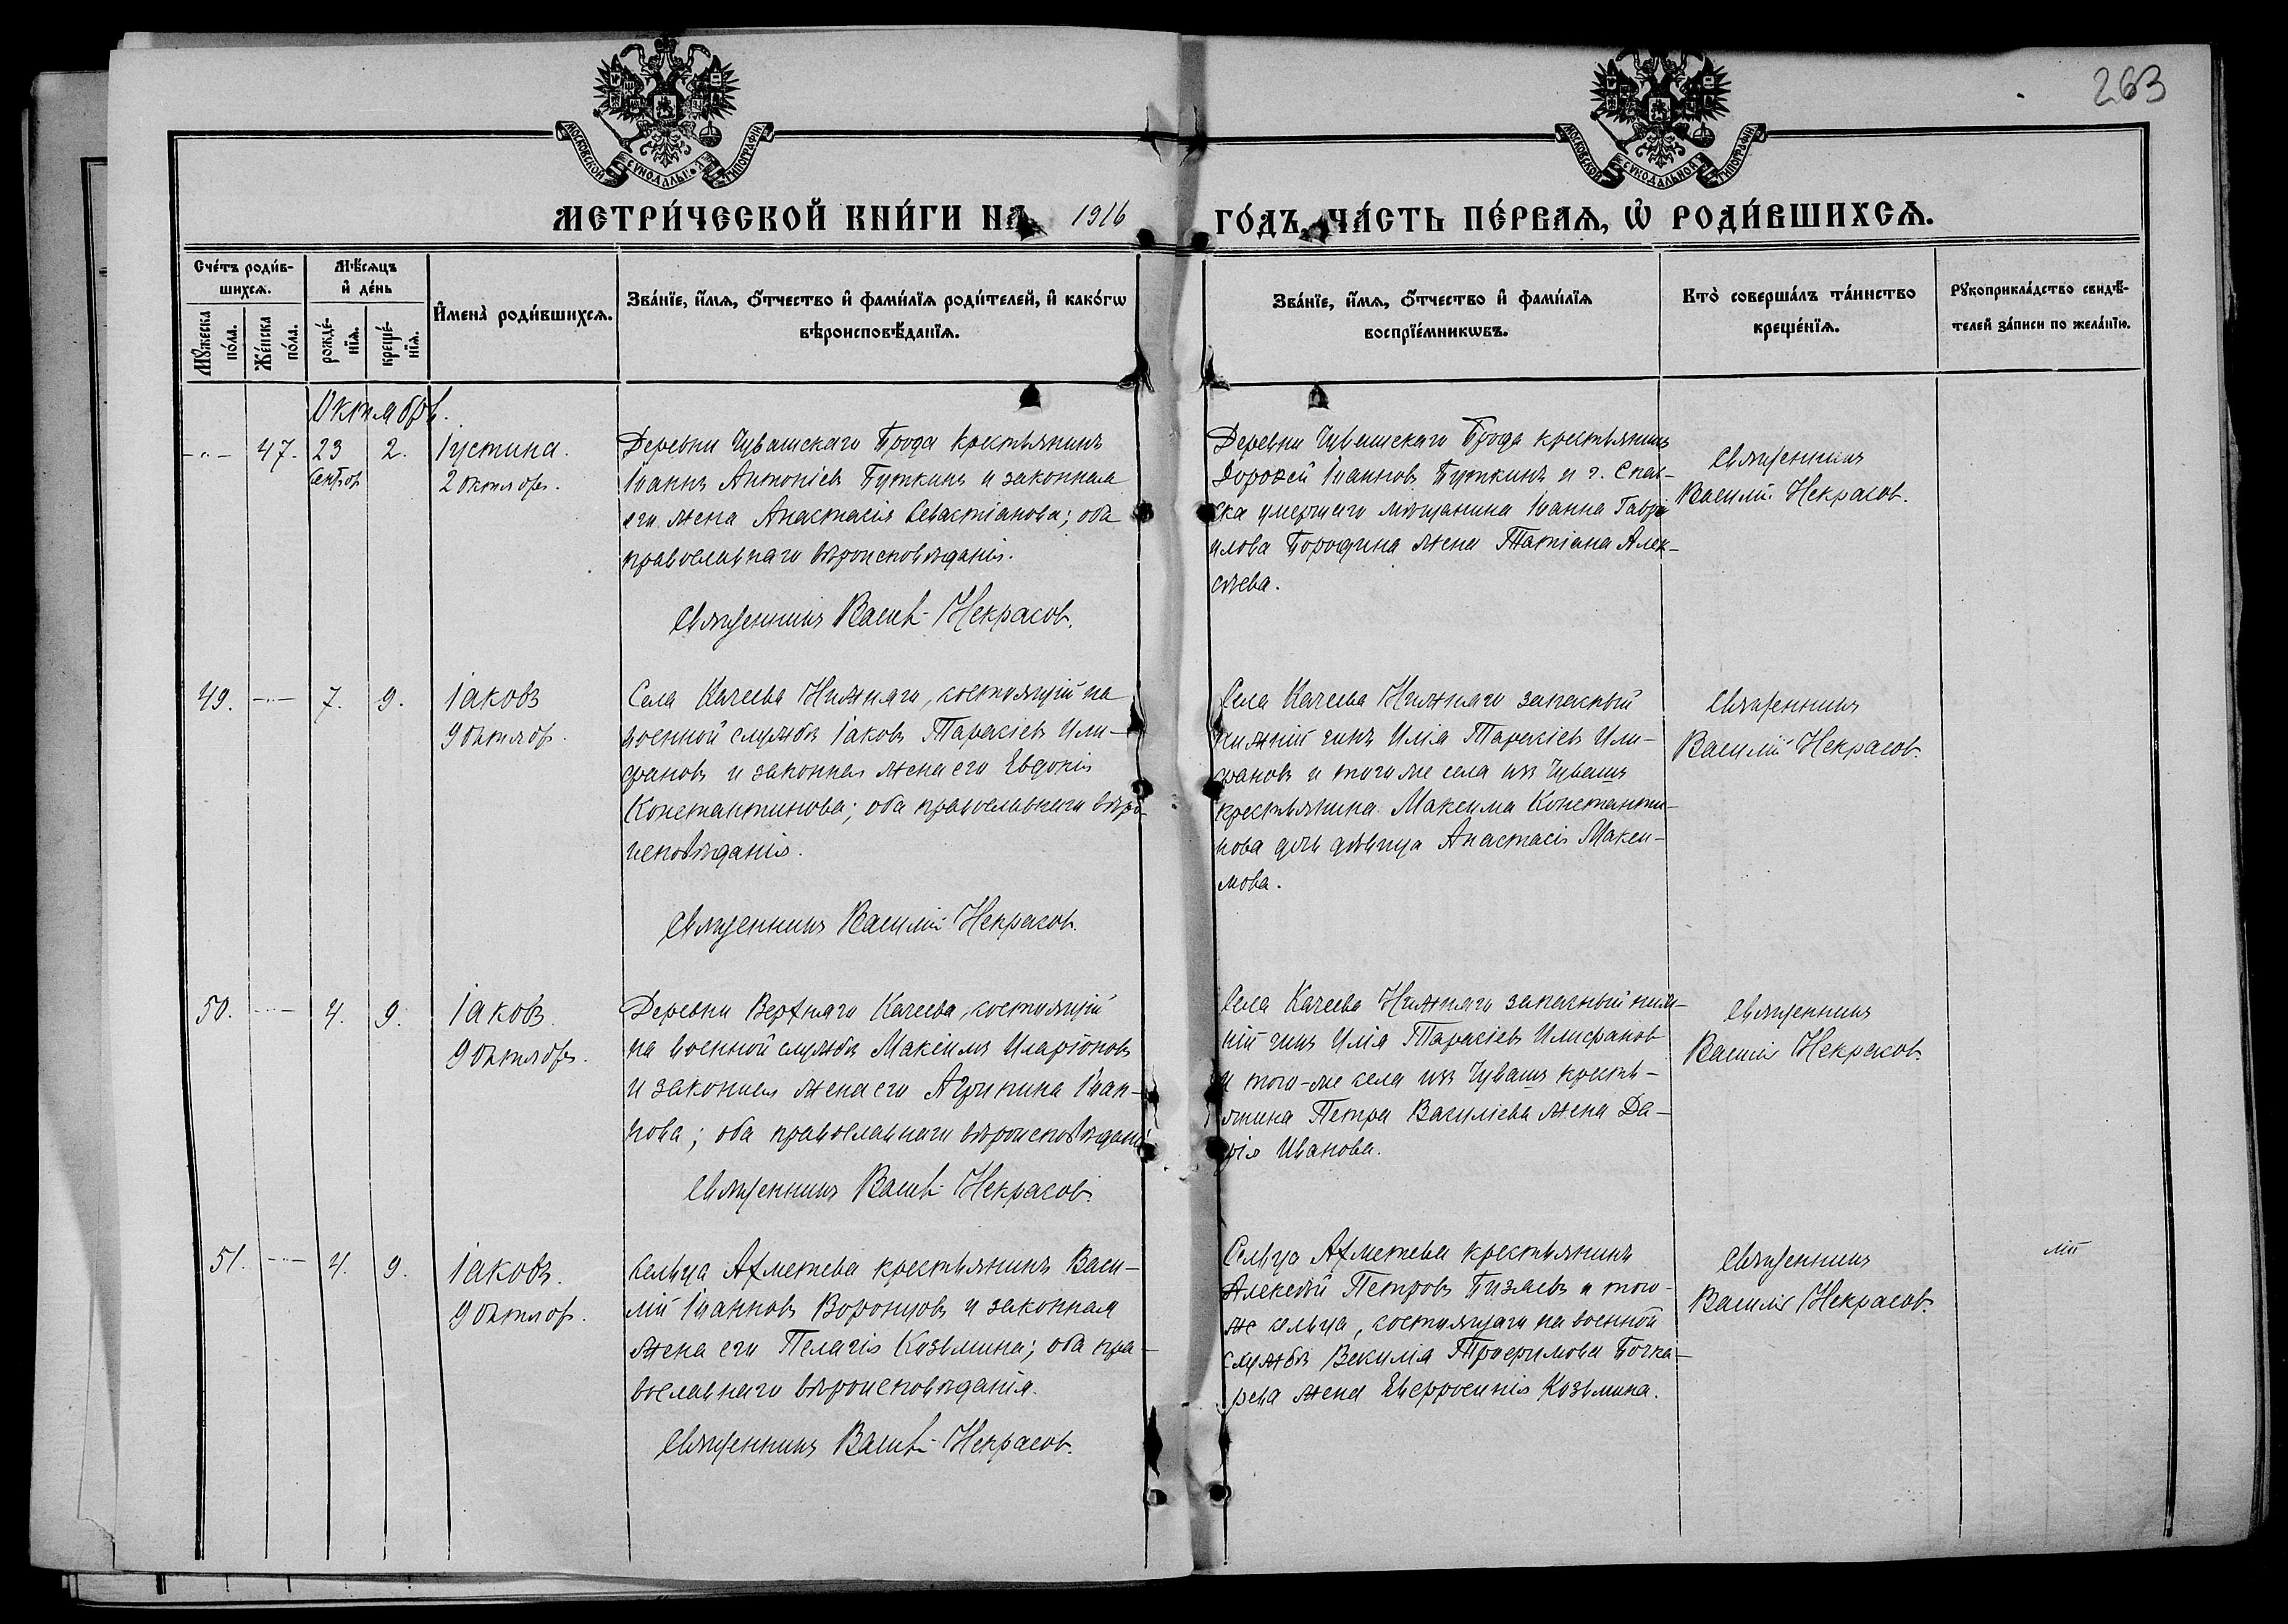 263
МОСКОВСКОЙ СѴНОДАЛЬНОЙ ТИПОГРАФІИ.
МОСКОВСКОЙ СѴНОДАЛЬНОЙ ТИПОГРАФІИ.
МЕТРИ́ЧЕСКОЙ КНИ́ГИ НА 1916 ГО́ДЪ, ЧА́СТЬ ПЕ́РВАѦ, Ѡ҆ РОДИ́ВШИХСѦ.
Сче́тъ роди́в-
шихсѧ.
Мꙋ́жеска по́ла.
Же́нска по́ла.
Мѣ́сѧцъ
и҆ де́нь
рожде́-
нїѧ.
креще́-
нїѧ.
И҆мена̀ роди́вшихсѧ.
Зва́нїе, и҆́мѧ, ѻ҆́тчество и҆ фами́лїѧ роди́телей, и҆ како́гѡ
вѣроисповѣ́данїѧ.
Зва́нїе, и҆́мѧ, ѻ҆́тчество и҆ фами́лїѧ
воспрїе́мникѡвъ.
Кто̀ соверша́лъ та́инство
креще́нїѧ.
Рꙋкоприкла́дство свидѣ́-
телей за́писи по жела́нїю.
Октябрь.
-"- 47. 23 Сентяб. 2. Іустина.
2 октября.
Деревни Чувашскаго Брода крестьянинъ
Іоаннъ Антоніевъ Буткинъ и законная
его жена Анастасія Севастіанова; оба
православнаго вѣроисповѣданія.
Священникъ Васил. Некрасовъ.
Деревни Чувашскаго Брода крестьянинъ
Дорофей Іоанновъ Буткинъ и г. Спас-
ска умершаго мѣщанина Іоанна Гаврі-
илова Бородина жена Татіана Алек-
сѣева.
Священникъ
Василій Некрасов.
49. -"- 7. 9. Іаковъ
9 Октября.
Села Качеева Нижняго, состоящій на
военной службѣ Іаковъ Тарасіевъ Или-
фановъ и законная жена его Евдокія
Константинова; оба православнаго вѣро-
исповѣданія.
Священникъ Василій Некрасовъ.
Села Качеева Нижняго запасный
нижній чинъ Илія Тарасіевъ Или-
фановъ и того же села изъ Чувашъ
крестьянина Максима Константи-
нова дочь дѣвица Анастасія Макси-
мова.
Священникъ
Василій Некрасовъ.
50. -"- 4. 9. Іаковъ.
9 Октября.
Деревни Верхняго Качеева, состоящій
на военной службѣ Максимъ Иларіоновъ
и законная жена его Агрипина Іоан-
нова; оба православнаго вѣроисповѣданія
Священникъ Васил. Некрасовъ.
Села Качеева Нижняго запасный ниж-
ній чинъ Илія Тарасіевъ Илифановъ
и того-же села изъ Чувашъ кресть-
янина Петра Василіева жена Да-
рія Иванова.
Священникъ
Василій Некрасовъ.
51. -"- 4. 9. Іаковъ.
9 Октября.
Сельца Ахметева крестьянинъ Васи-
лій Іоанновъ Воронцовъ и законная
жена его Пелагія Козьмина; оба пра-
вославнаго вѣроисповѣданія.
Священникъ Васил. Некрасовъ.
Сельца Ахметева крестьянинъ
Алексѣй Петровъ Бизяевъ и того-
же сельца, состоящаго на военной
службѣ Трофимова Бочка-
рева жена Евфросинія Козьмина.
Священникъ
Василій Некрасовъ.